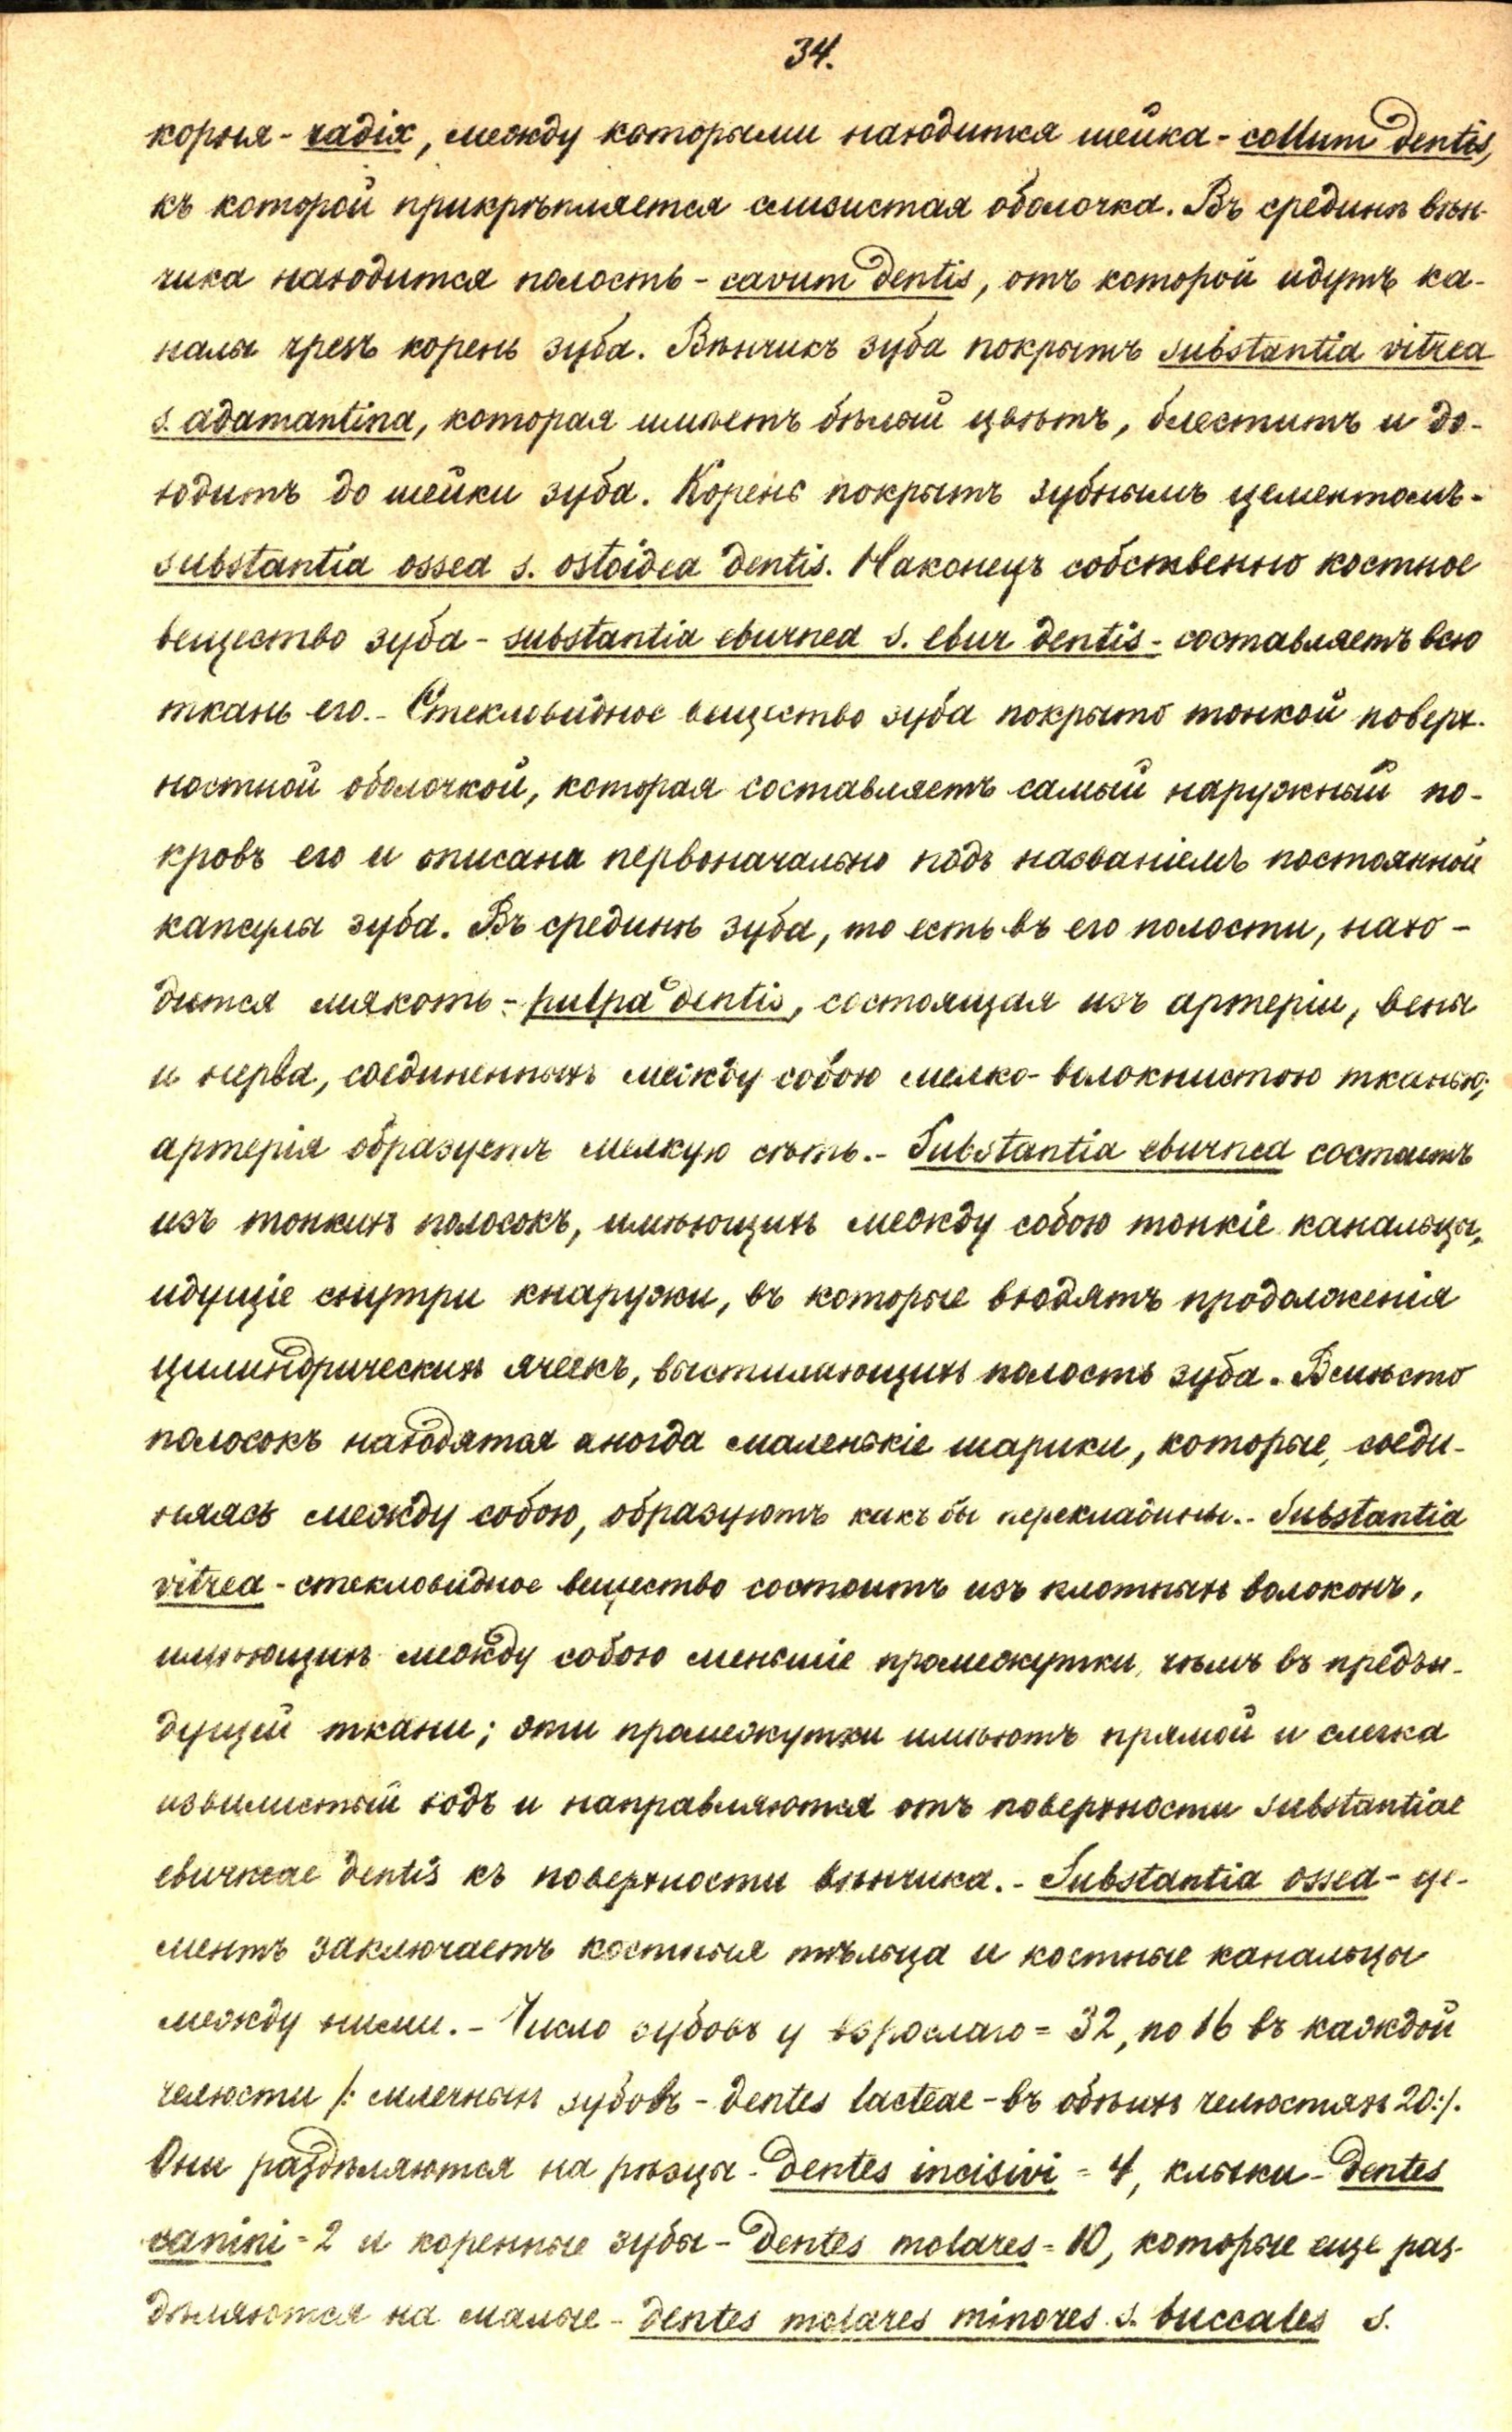 34.
корня - radix, между которыми находится шейка - collum dentis,
къ которой прикрѣпляется слизистая оболочка. Въ срединѣ вѣн-
чика находится полость - cavum dentis, отъ которой идутъ ка-
налы чрезъ корень зуба. Вѣнчикъ зуба покрытъ substantia vitrea
s. adamantina, которая имѣетъ бѣлый цвѣтъ, блеститъ и до-
ходитъ до шейки зуба. Корень покрытъ зубнымъ цементомъ -
substantia ossea s. ostoidea dentis. Наконецъ собственно костное
вещество зуба - substantia eburnea s. ebur dentis - составляетъ всю
ткань его. - Стекловидное вещество зуба покрыто тонкой поверх-
ностной оболочкой, которая составляетъ самый наружный по-
кровъ его и описана первоначально подъ названіемъ постоянной
капсулы зуба. Въ срединѣ зуба, то есть въ его полости, нахо-
дится мякоть - pulpa dentis, состоящая изъ артеріи, вены
и нерва, соединенныхъ между собою мелко-волокнистою тканью;
артерія образуетъ мелкую сѣть. - Substantia eburnea состоитъ
изъ тонкихъ полосокъ, имѣющихъ между собою тонкіе канальцы,
идущіе снутри кнаружи, въ которые входятъ продолженія
цилиндрическихъ ячеекъ, выстилающихъ полость зуба. Вмѣсто
полосокъ находятся иногда маленькіе шарики, которые, соеди-
няясь между собою, образуютъ какъ бы перекладины. - Substantia
vitrea - стекловидное вещество состоитъ изъ плотныхъ волоконъ,
имѣющихъ между собою меньшіе промежутки, чѣмъ въ предъи-
дущей ткани; эти промежутки имѣютъ прямой и слегка
извилистый ходъ и направляются отъ поверхности substantiae
eburneae dentis къ поверхности вѣнчика. - Substantia ossea - це-
ментъ заключаетъ костныя тѣльца и костные канальцы
между ними. - Число зубовъ у взрослаго = 32, по 16 въ каждой
челюсти /: млечныхъ зубовъ - dentes lacteae - въ обѣихъ челюстяхъ 20:/.
Они раздѣляются на рѣзцы - dentes incisivi = 4, клыки - dentes
canini = 2 и коренные зубы - dentes molares = 10, которые еще раз-
дѣляются на малые - dentes molares minores s. buccales s.